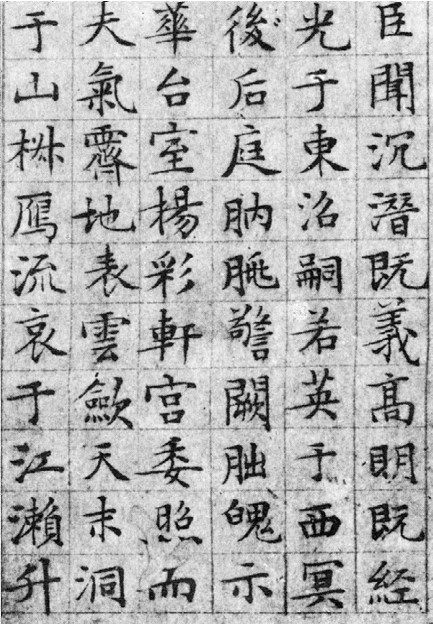 臣聞沉潛既義髙明既經
光于東沼嗣若英于西冥
後后庭朒朓警闕朏魄示
華台室楊彩軒宫委照而
夫氣霽地表雲歛天末洞
于山椒鴈流哀于江瀨升